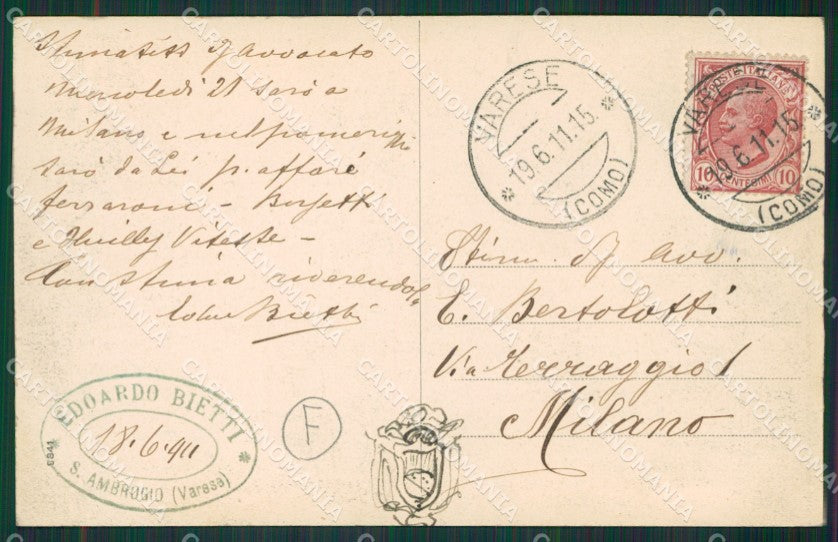 Avvocato
Mercoledì 21 sarò a
Milano e nel pomeriggio
sarò da Lei p. affari
Ferraroni - Borsetti
e Vitesse -
Con stima riverendola
Bietti
EDOARDO BIETTI
18.6.911
S. AMBROGIO (Varese)
8841
F
VARESE
19.6.11.15
(COMO)
POSTE ITALIANE
10 CENTESIMI 10
VARESE
19.6.11.15
(COMO)
Stim. Sig. Avv.
E. Bertolotti
Via Terraggio 1
Milano
CARTOLINOMANIA